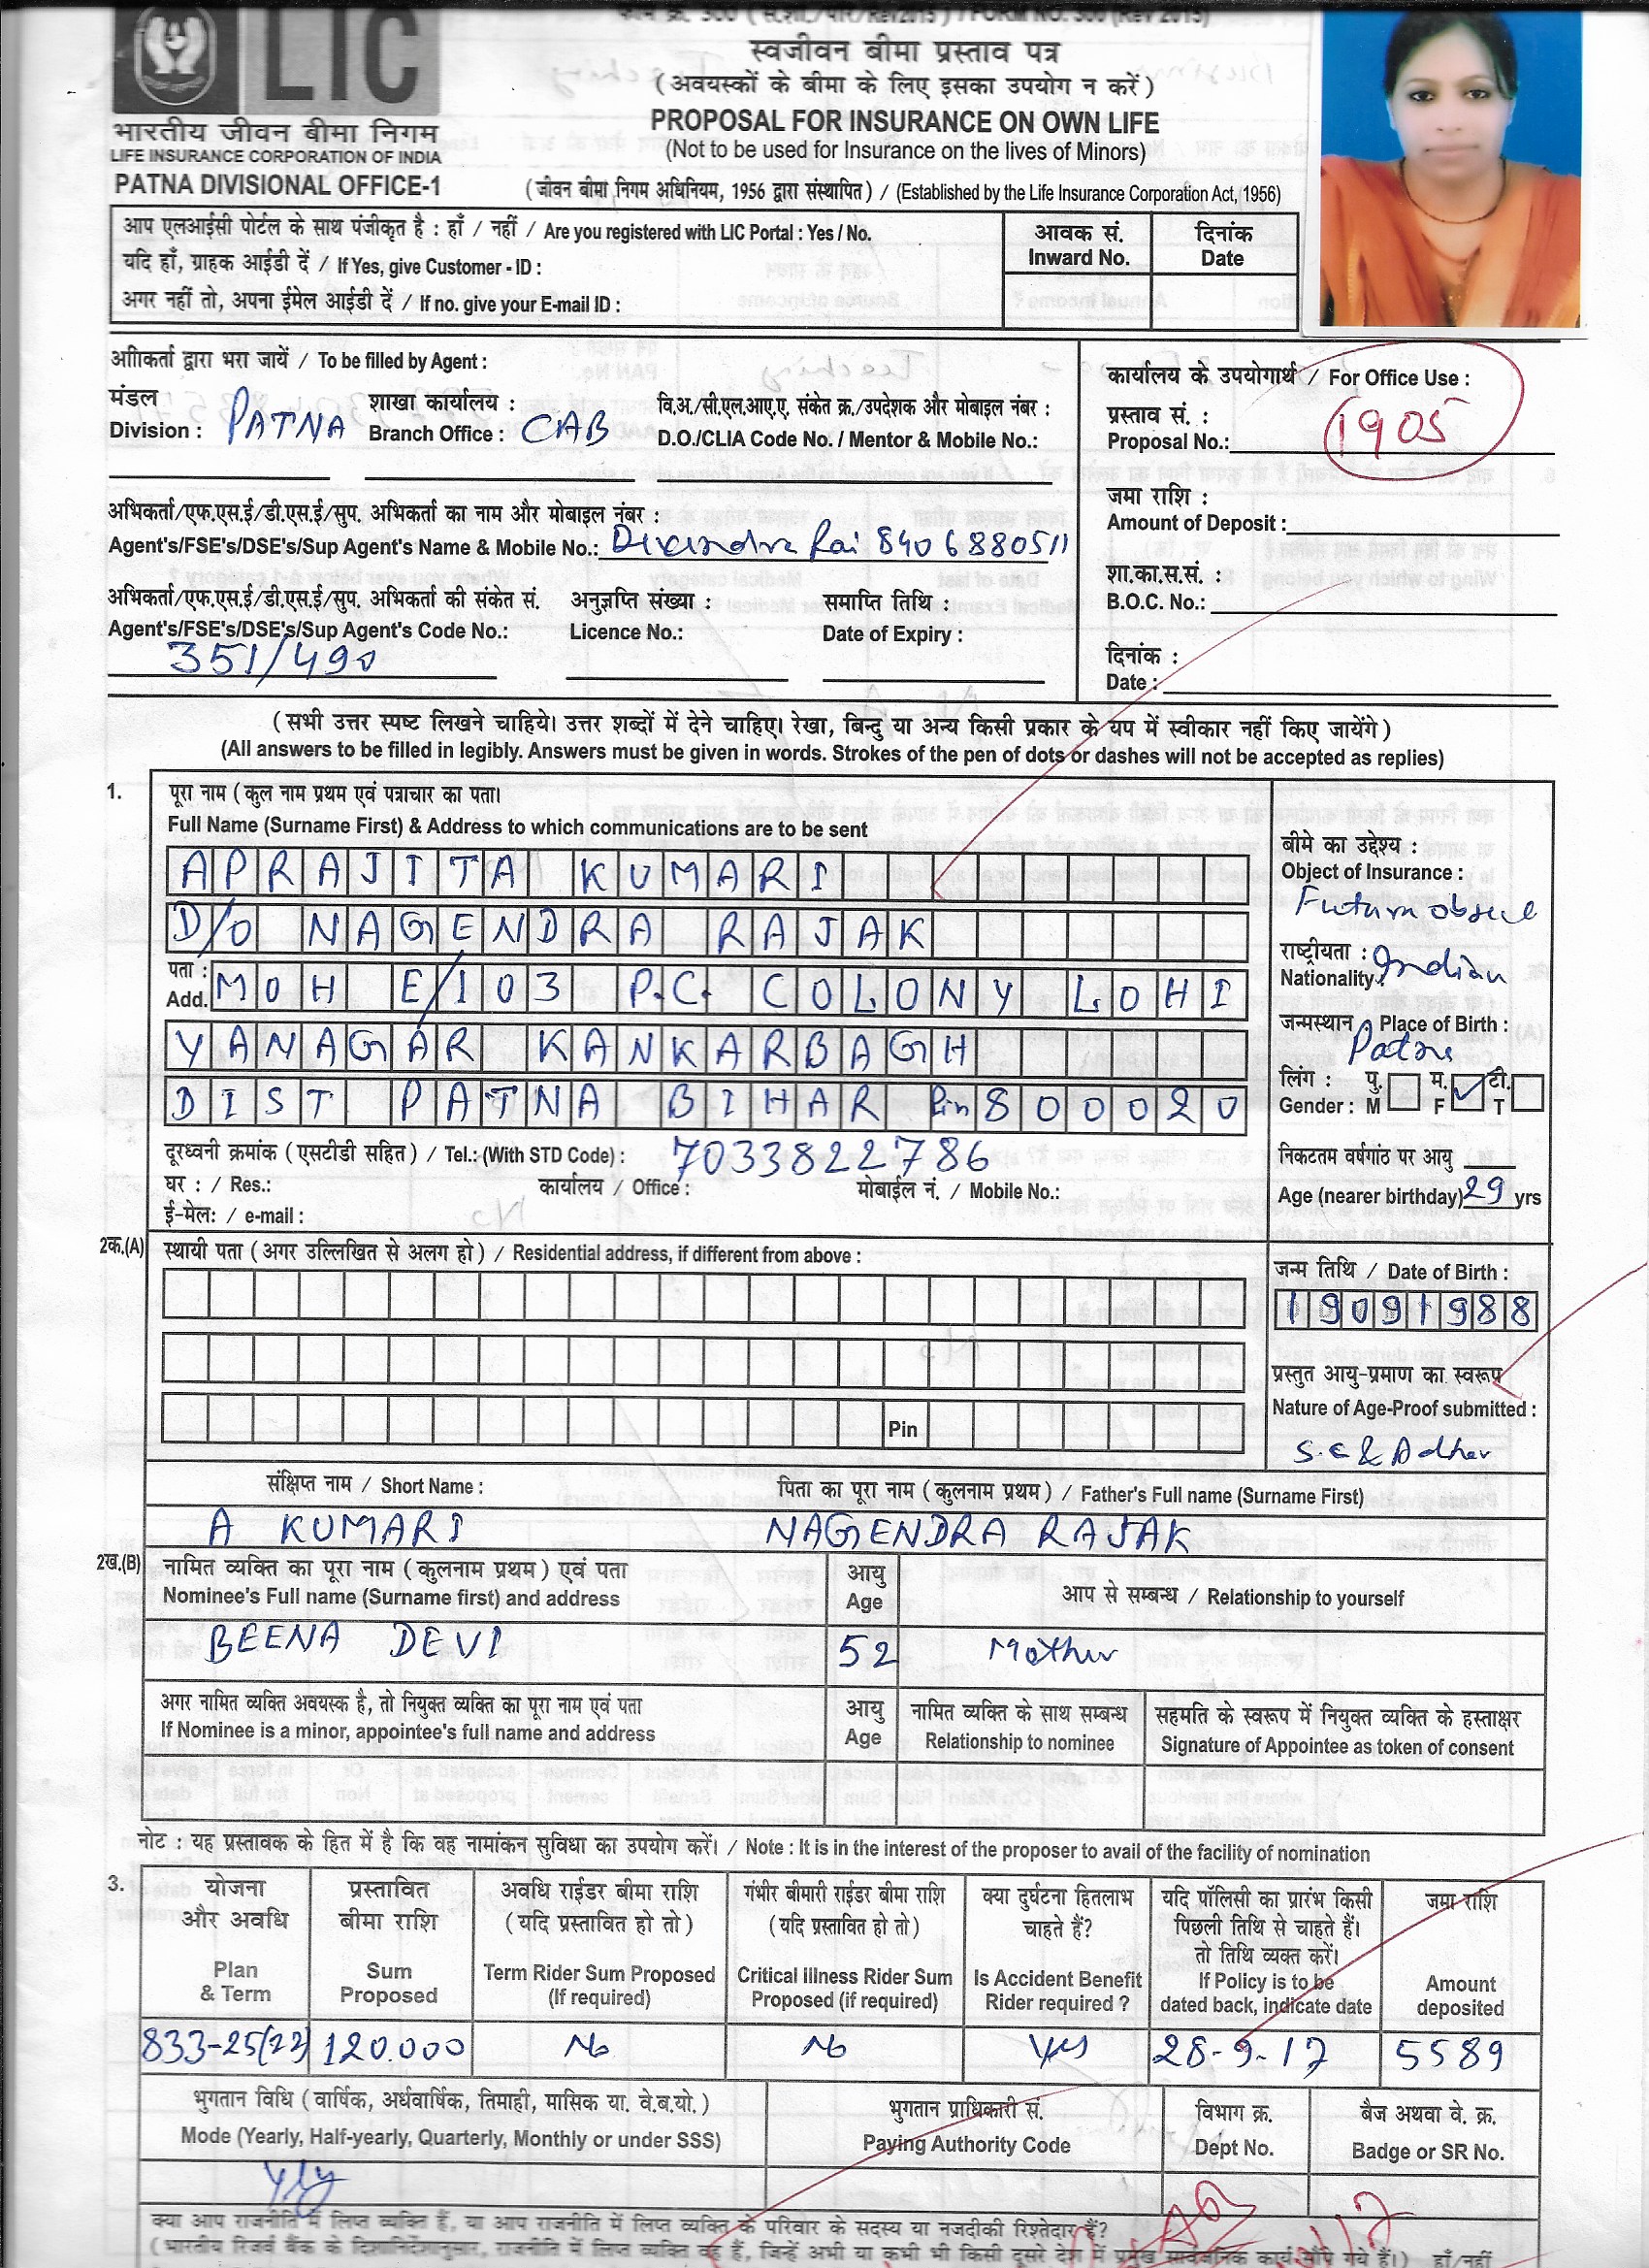 फॉर्म क्र. 300 ( संशो./पार/Rev2015 ) / FORM NO. 300 (Rev 2015)
LIC
स्वजीवन बीमा प्रस्ताव पत्र
( अवयस्कों के बीमा के लिए इसका उपयोग न करें )
भारतीय जीवन बीमा निगम
PROPOSAL FOR INSURANCE ON OWN LIFE
LIFE INSURANCE CORPORATION OF INDIA
(Not to be used for Insurance on the lives of Minors)
PATNA DIVISIONAL OFFICE-1
( जीवन बीमा निगम अधिनियम, 1956 द्वारा संस्थापित ) / (Established by the Life Insurance Corporation Act, 1956)
आप एलआईसी पोर्टल के साथ पंजीकृत है : हाँ / नहीं / Are you registered with LIC Portal : Yes / No.
यदि हाँ, ग्राहक आईडी दें / If Yes, give Customer - ID :
अगर नहीं तो, अपना ईमेल आईडी दें / If no. give your E-mail ID :
आवक सं. दिनांक
Inward No. Date
आीकर्ता द्वारा भरा जायें / To be filled by Agent :
मंडल शाखा कार्यालय : वि.अ./सी.एल.आए.ए. संकेत क्र./उपदेशक और मोबाइल नंबर :
Division : PATNA Branch Office : CAB D.O./CLIA Code No. / Mentor & Mobile No.:
अभिकर्ता/एफ.एस.ई/डी.एस.ई/सुप. अभिकर्ता का नाम और मोबाइल नंबर :
Agent's/FSE's/DSE's/Sup Agent's Name & Mobile No.: Rai 8406880511
अभिकर्ता/एफ.एस.ई/डी.एस.ई/सुप. अभिकर्ता की संकेत सं. अनुज्ञप्ति संख्या : समाप्ति तिथि :
Agent's/FSE's/DSE's/Sup Agent's Code No.: Licence No.: Date of Expiry :
351/490
कार्यालय के उपयोगार्थ / For Office Use :
प्रस्ताव सं. :
Proposal No.: 1905
जमा राशि :
Amount of Deposit :
शा.का.स.सं. :
B.O.C. No.:
दिनांक :
Date :
( सभी उत्तर स्पष्ट लिखने चाहिये। उत्तर शब्दों में देने चाहिए। रेखा, बिन्दु या अन्य किसी प्रकार के यप में स्वीकार नहीं किए जायेंगे )
(All answers to be filled in legibly. Answers must be given in words. Strokes of the pen of dots or dashes will not be accepted as replies)
1. पूरा नाम ( कुल नाम प्रथम एवं पत्राचार का पता।
Full Name (Surname First) & Address to which communications are to be sent
APRAJITA KUMARI
D/O NAGENDRA RAJAK
पता :
Add. MOH E/103 P.C. COLONY LOHI
YANAGAR KANKARBAGH
DIST PATNA BIHAR Pin 800020
दूरध्वनी क्रमांक ( एसटीडी सहित ) / Tel.: (With STD Code) : 7033822786
घर : / Res.: कार्यालय / Office : मोबाईल नं. / Mobile No.:
ई-मेल: / e-mail :
बीमे का उद्देश्य :
Object of Insurance :
Future
राष्ट्रीयता :
Nationality: Indian
जन्मस्थान / Place of Birth :
Patna
लिंग : पु. म. टी.
Gender : M F ✓ T
निकटतम वर्षगांठ पर आयु
Age (nearer birthday) 29 yrs
2क.(A) स्थायी पता ( अगर उल्लिखित से अलग हो ) / Residential address, if different from above :
Pin
जन्म तिथि / Date of Birth :
19091988
प्रस्तुत आयु-प्रमाण का स्वरूप
Nature of Age-Proof submitted :
S.C & Adhar
संक्षिप्त नाम / Short Name : पिता का पूरा नाम ( कुलनाम प्रथम ) / Father's Full name (Surname First)
A KUMARI NAGENDRA RAJAK
2ख.(B) नामित व्यक्ति का पूरा नाम ( कुलनाम प्रथम ) एवं पता आयु आप से सम्बन्ध / Relationship to yourself
Nominee's Full name (Surname first) and address Age
BEENA DEVI 52 Mother
अगर नामित व्यक्ति अवयस्क है, तो नियुक्त व्यक्ति का पूरा नाम एवं पता आयु नामित व्यक्ति के साथ सम्बन्ध सहमति के स्वरूप में नियुक्त व्यक्ति के हस्ताक्षर
If Nominee is a minor, appointee's full name and address Age Relationship to nominee Signature of Appointee as token of consent
नोट : यह प्रस्तावक के हित में है कि वह नामांकन सुविधा का उपयोग करें। / Note : It is in the interest of the proposer to avail of the facility of nomination
3. योजना और अवधि
Plan & Term
प्रस्तावित बीमा राशि
Sum Proposed
अवधि राईडर बीमा राशि ( यदि प्रस्तावित हो तो )
Term Rider Sum Proposed (If required)
गंभीर बीमारी राईडर बीमा राशि ( यदि प्रस्तावित हो तो )
Critical Illness Rider Sum Proposed (if required)
क्या दुर्घटना हितलाभ चाहते हैं?
Is Accident Benefit Rider required ?
यदि पॉलिसी का प्रारंभ किसी पिछली तिथि से चाहते हैं। तो तिथि व्यक्त करें।
If Policy is to be dated back, indicate date
जमा राशि
Amount deposited
833-25(22) 120.000 No No Yes 28-9-17 5589
भुगतान विधि ( वार्षिक, अर्धवार्षिक, तिमाही, मासिक या. वे.ब.यो. ) भुगतान प्राधिकारी सं. विभाग क्र. बैज अथवा वे. क्र.
Mode (Yearly, Half-yearly, Quarterly, Monthly or under SSS) Paying Authority Code Dept No. Badge or SR No.
Yly
क्या आप राजनीति में लिप्त व्यक्ति हैं, या आप राजनीति में लिप्त व्यक्ति के परिवार के सदस्य या नजदीकी रिश्तेदार हैं?
( भारतीय रिजर्व बैंक के दिशानिर्देशानुसार, राजनीति में लिप्त व्यक्ति वह हैं, जिन्हें अभी या कभी भी किसी दूसरे देश में प्रमुख सार्वजनिक कार्य सौंपे गये हैं।) हाँ/नहीं